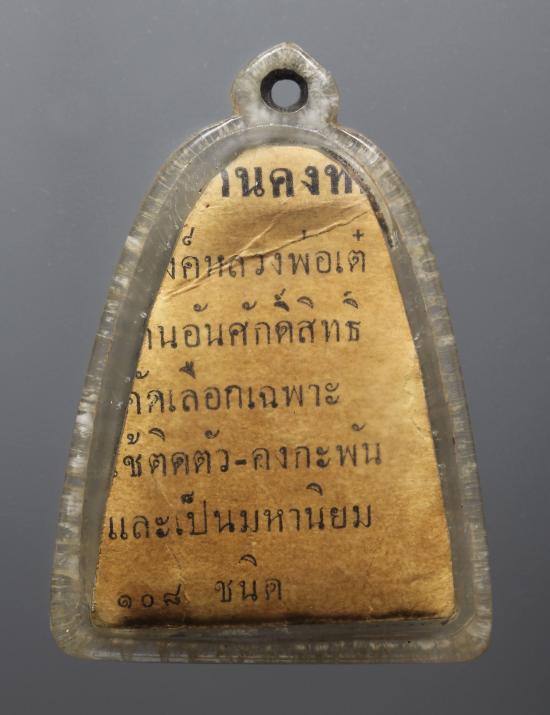 านคงท
งค์หลวงพ่อเต๋
านอันศักดิ์สิทธิ
คัดเลือกเฉพาะ
ใช้ติดตัว-คงกะพัน
และเป็นมหานิยม
๑๐๘ ชนิด